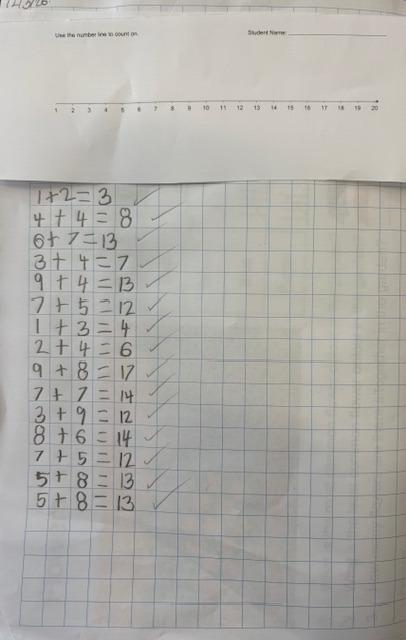 Use the number line to count on.
Student Name:
1 2 3 4 5 6 7 8 9 10 11 12 13 14 15 16 17 18 19 20
1+2=3
4+4=8
6+7=13
3+4=7
9+4=13
7+5=12
1+3=4
2+4=6
9+8=17
7+7=14
3+9=12
8+6=14
7+5=12
5+8=13
5+8=13